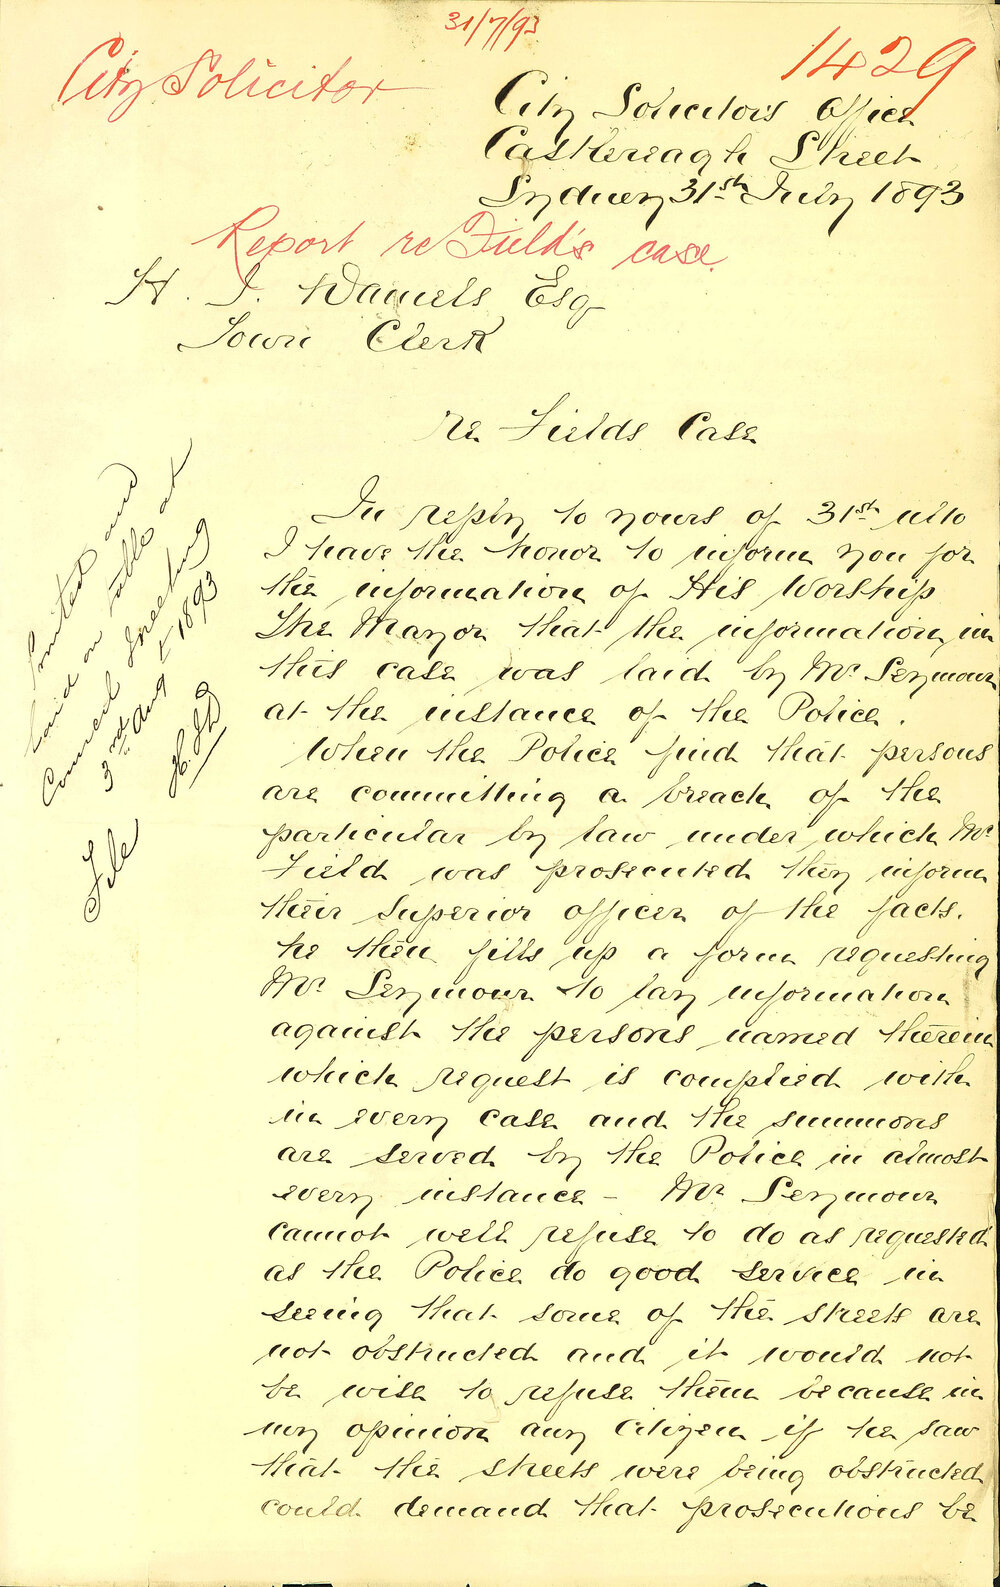 31/7/93
1429
City Solicitor
City Solicitor's Office
Castlereagh Street
Sydney 31st July 1893
Report re Field's case.
H. J. Daniels Esq
Town Clerk
re Fields Case
In reply to yours of 31st ulto
I have the honor to inform you for
the information of His Worship
The Mayor that the information in
this case was laid by Mr Seymour
at the instance of the Police.
When the Police find that persons
are committing a breach of the
particular by law under which Mr
Field was prosecuted they inform
their superior officer of the facts.
he then fills up a form requesting
Mr Seymour to lay information
against the persons named therein
which request is complied with
in every case and the summons
are served by the Police in almost
every instance - Mr Seymour
cannot well refuse to do as requested
as the Police do good service in
seeing that some of the streets are
not obstructed and it would not
be wise to refuse them because in
my opinion any Citizen if he saw
that the streets were being obstructed
could demand that prosecutions be
Printed and
laid on table at
Council Meeting
3rd Aug 1893
File